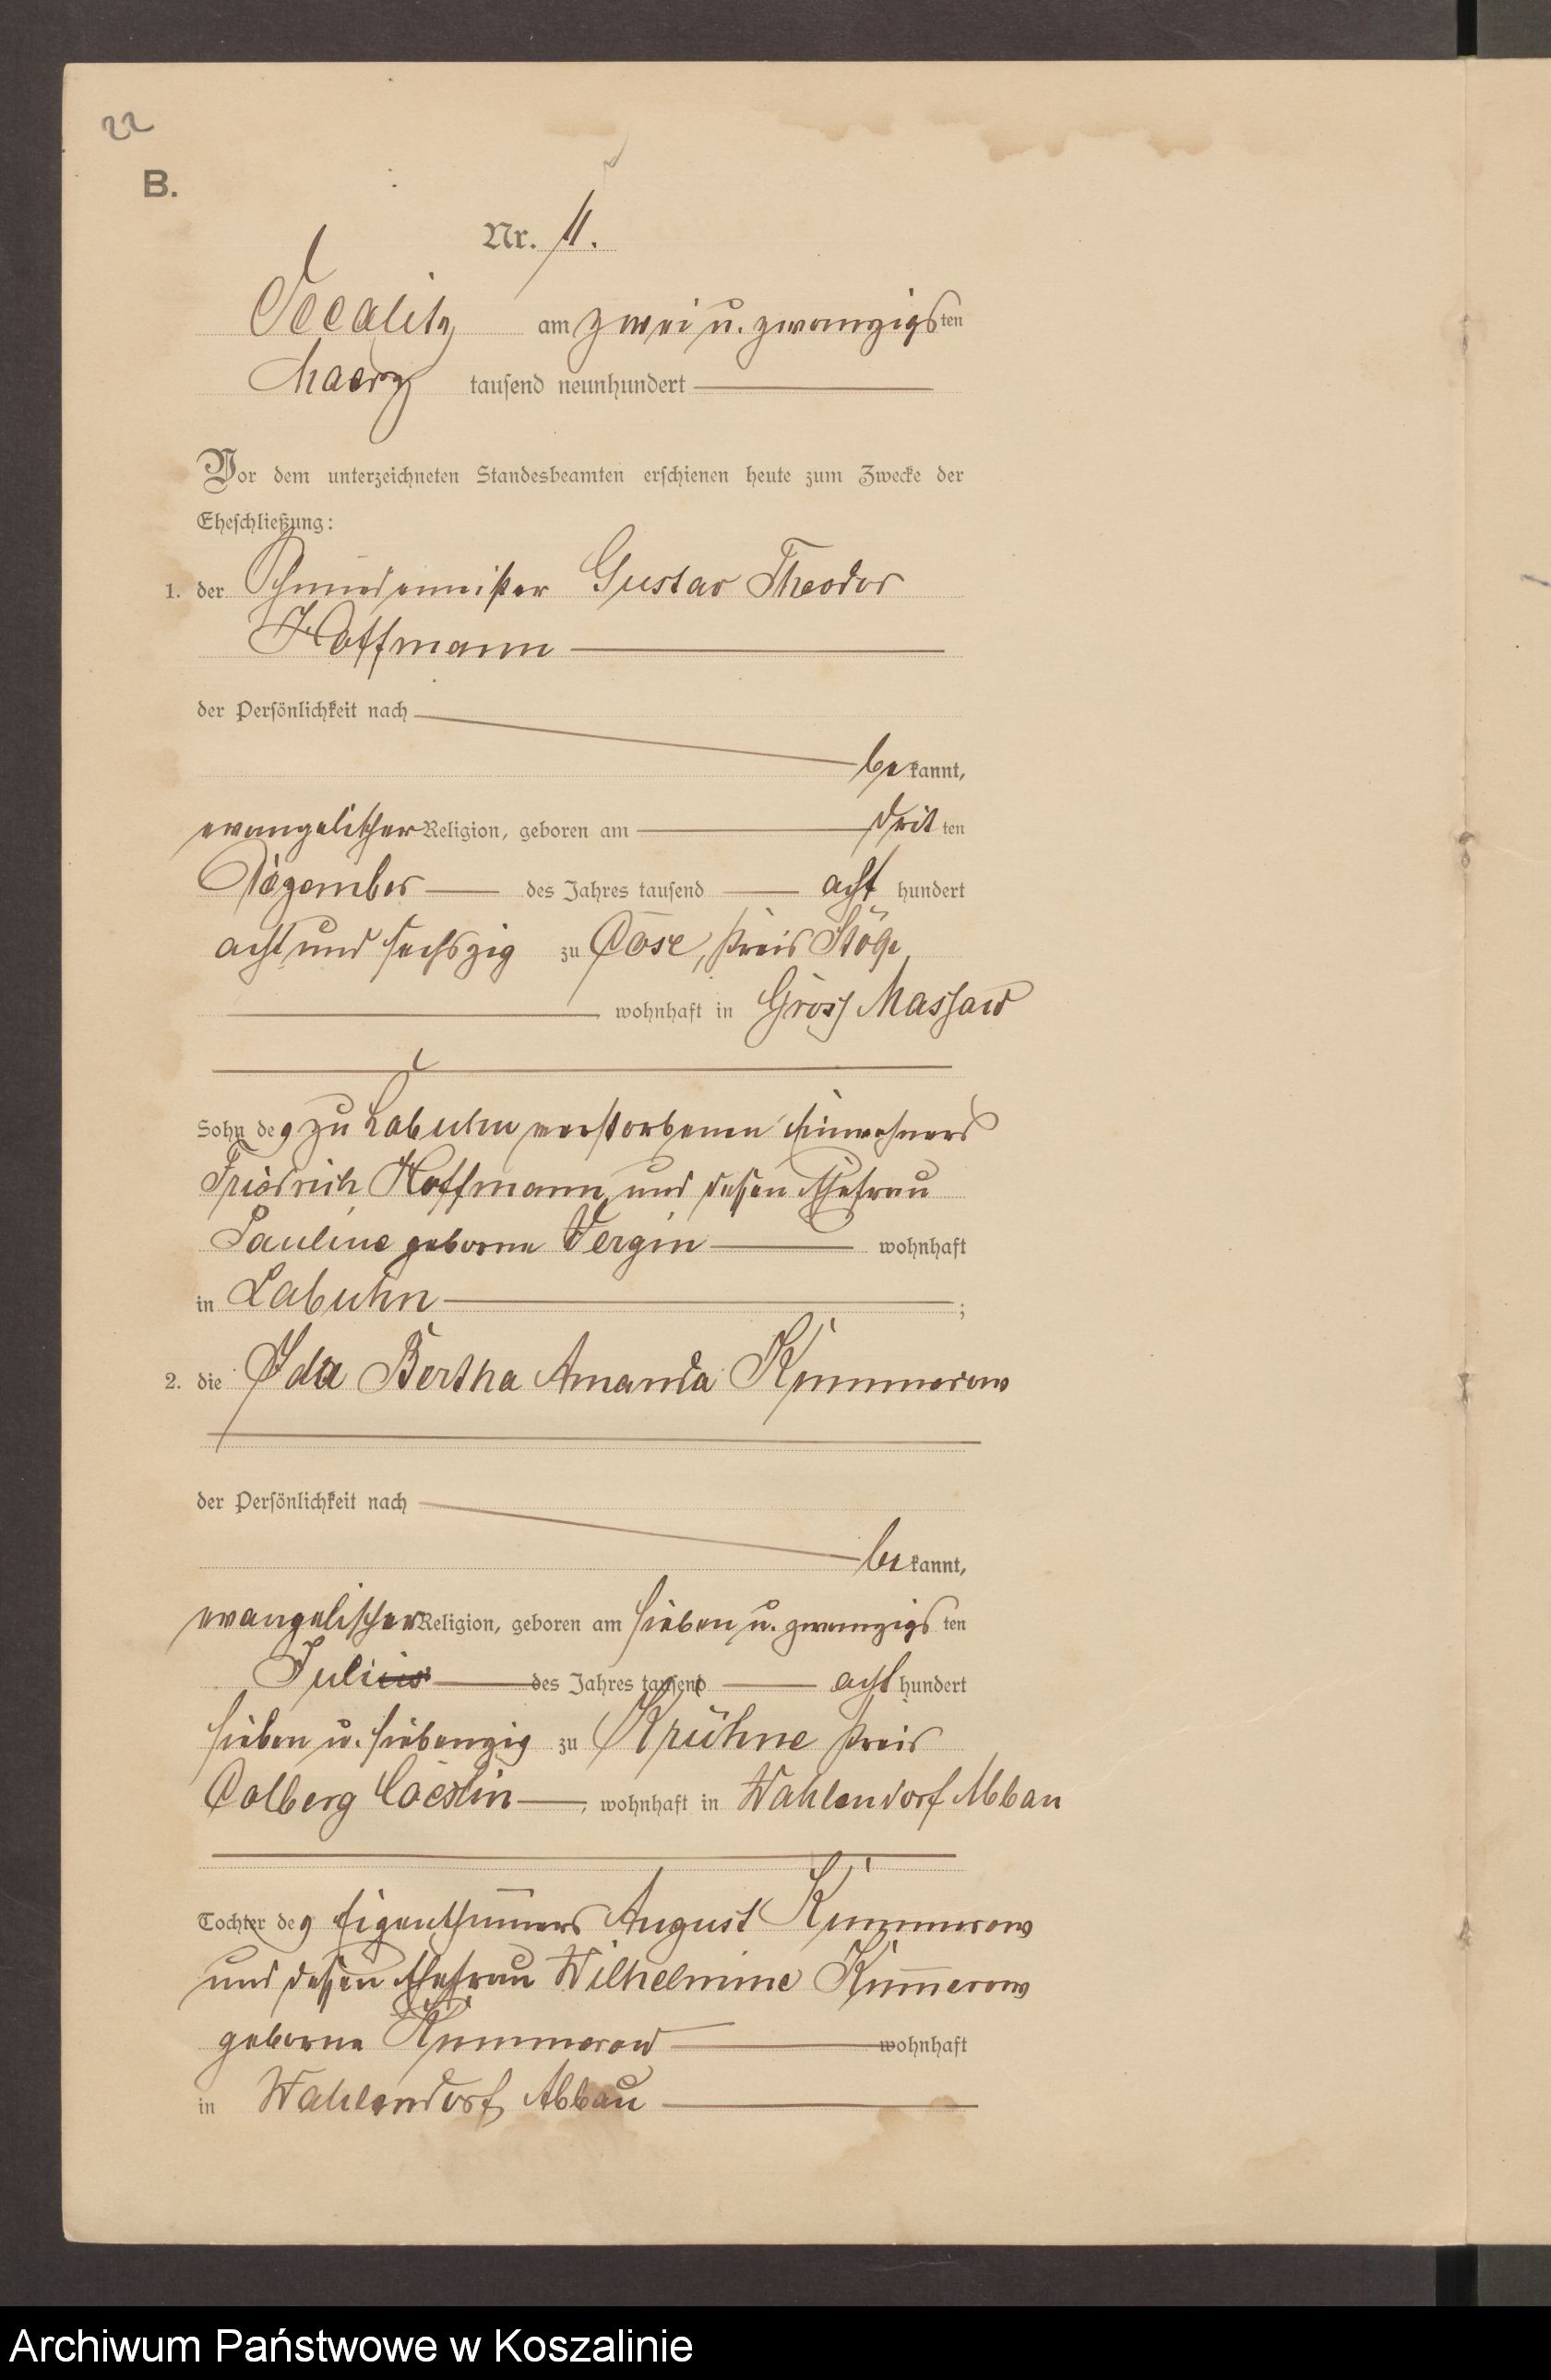 22
B.
Nr. 11.
Zecalitz am zwei u. zwanzigsten
Maerz tausend neunhundert
Vor dem unterzeichneten Standesbeamten erschienen heute zum Zwecke der
Eheschließung:
1. der Schmiedemeister Gustav Theodor
Hoffmann
der Persönlichkeit nach
bekannt,
evangelischer Religion, geboren am dritten
Dezember des Jahres tausend acht hundert
acht und sechszig zu Kreis
wohnhaft in Gross Massow
Sohn des zu Labuhn verstorbenen Einwohners
Friedrich Hoffmann und dessen Ehefrau
Pauline geborne Vergin wohnhaft
in Labuhn ;
2. die Ida Bertha Amanda Kummerow
der Persönlichkeit nach
bekannt,
evangelischer Religion, geboren am sieben u. zwanzigsten
Juli des Jahres tausend acht hundert
sieben u. siebenzig zu Krühne Kreis
Colberg Coeslin, wohnhaft in Wahlendorf Abbau
Tochter des Eigenthümers August Kummerow
und dessen Ehefrau Wilhelmine Kum̅erow
geborne Kummerow wohnhaft
in Wahlendorf Abbau
Archiwum Państwowe w Koszalinie